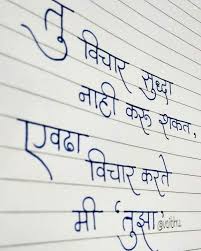 तु विचार सुध्दा
नाही करू शकत,
एवढा विचार करते
मी 'तुझा'